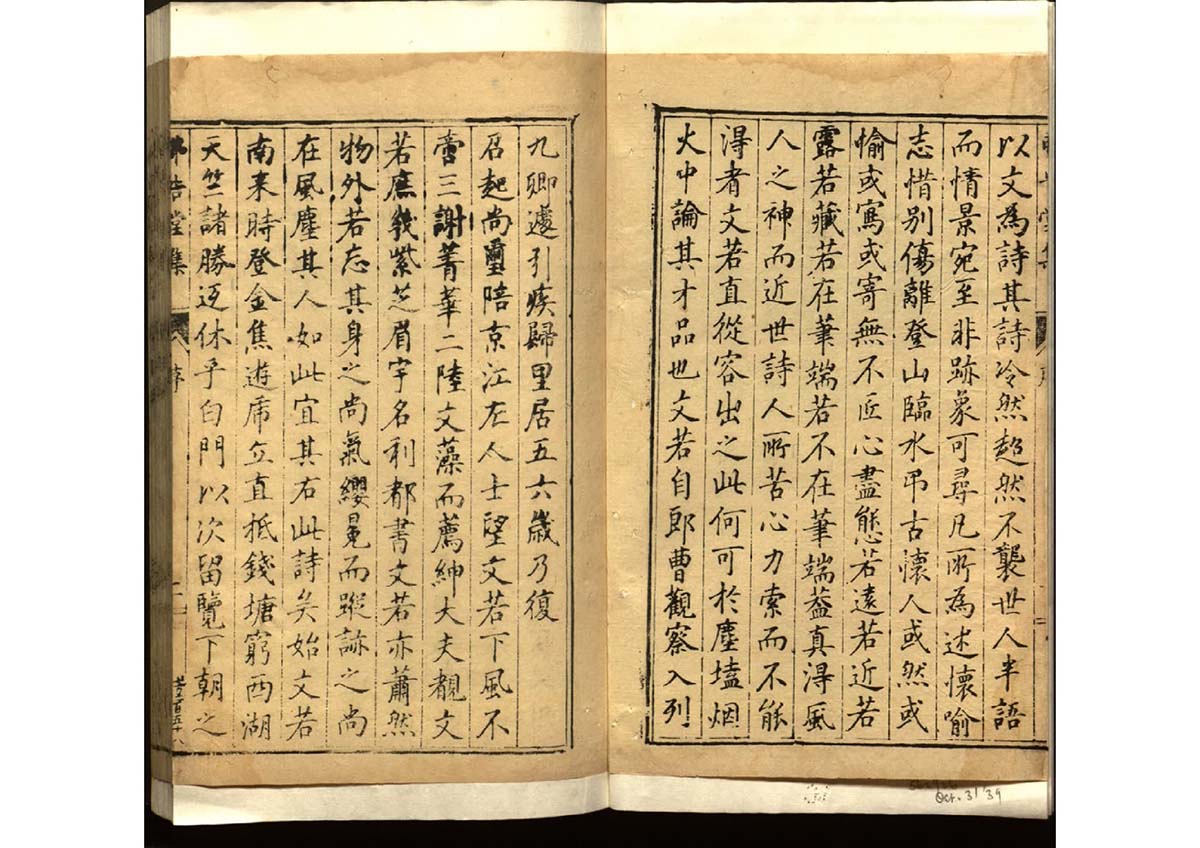 以文為詩其詩冷然超然不襲世人半語
而情景宛至非跡象可尋凡所為述懷喻
志惜別傷離登山臨水弔古懷人或然或
愉或寫或寄無不匠心盡態若遠若近若
露若藏若在筆端若不在筆端葢真淂風
人之神而近世詩人所苦心力索而不能
淂者文若直從容出之此何可於塵𡏖烟
火中論其才品也文若自郎曹觀察入列
九卿遽引疾歸里居五六歲乃復
召起尚璽陪京江左人士望文若下風不
啻三謝菁華二陸文藻而薦紳大夫覩文
若庶幾紫芝眉宇名利都書文若亦蕭然
物外若忘其身之尚氣纓冕而蹤跡之尚
在風塵其人如此宜其右此詩矣始文若
南来時登金焦遊虎丘直抵錢塘窮西湖
天竺諸勝迓休乎白門以次留覽下朝之
堂集
序
二
Oct. 31 '39